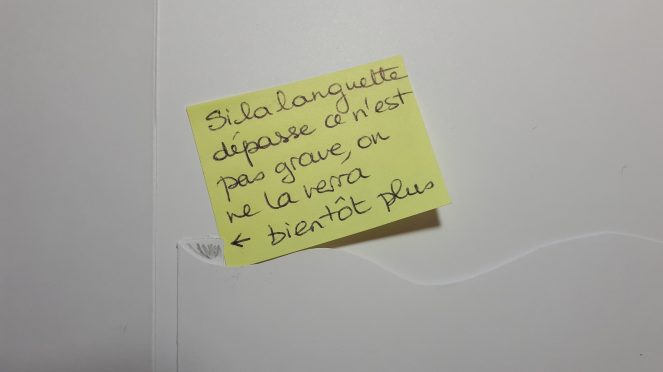 Si la languette
dépasse ce n'est
pas grave, on
ne la verra
← bientôt plus